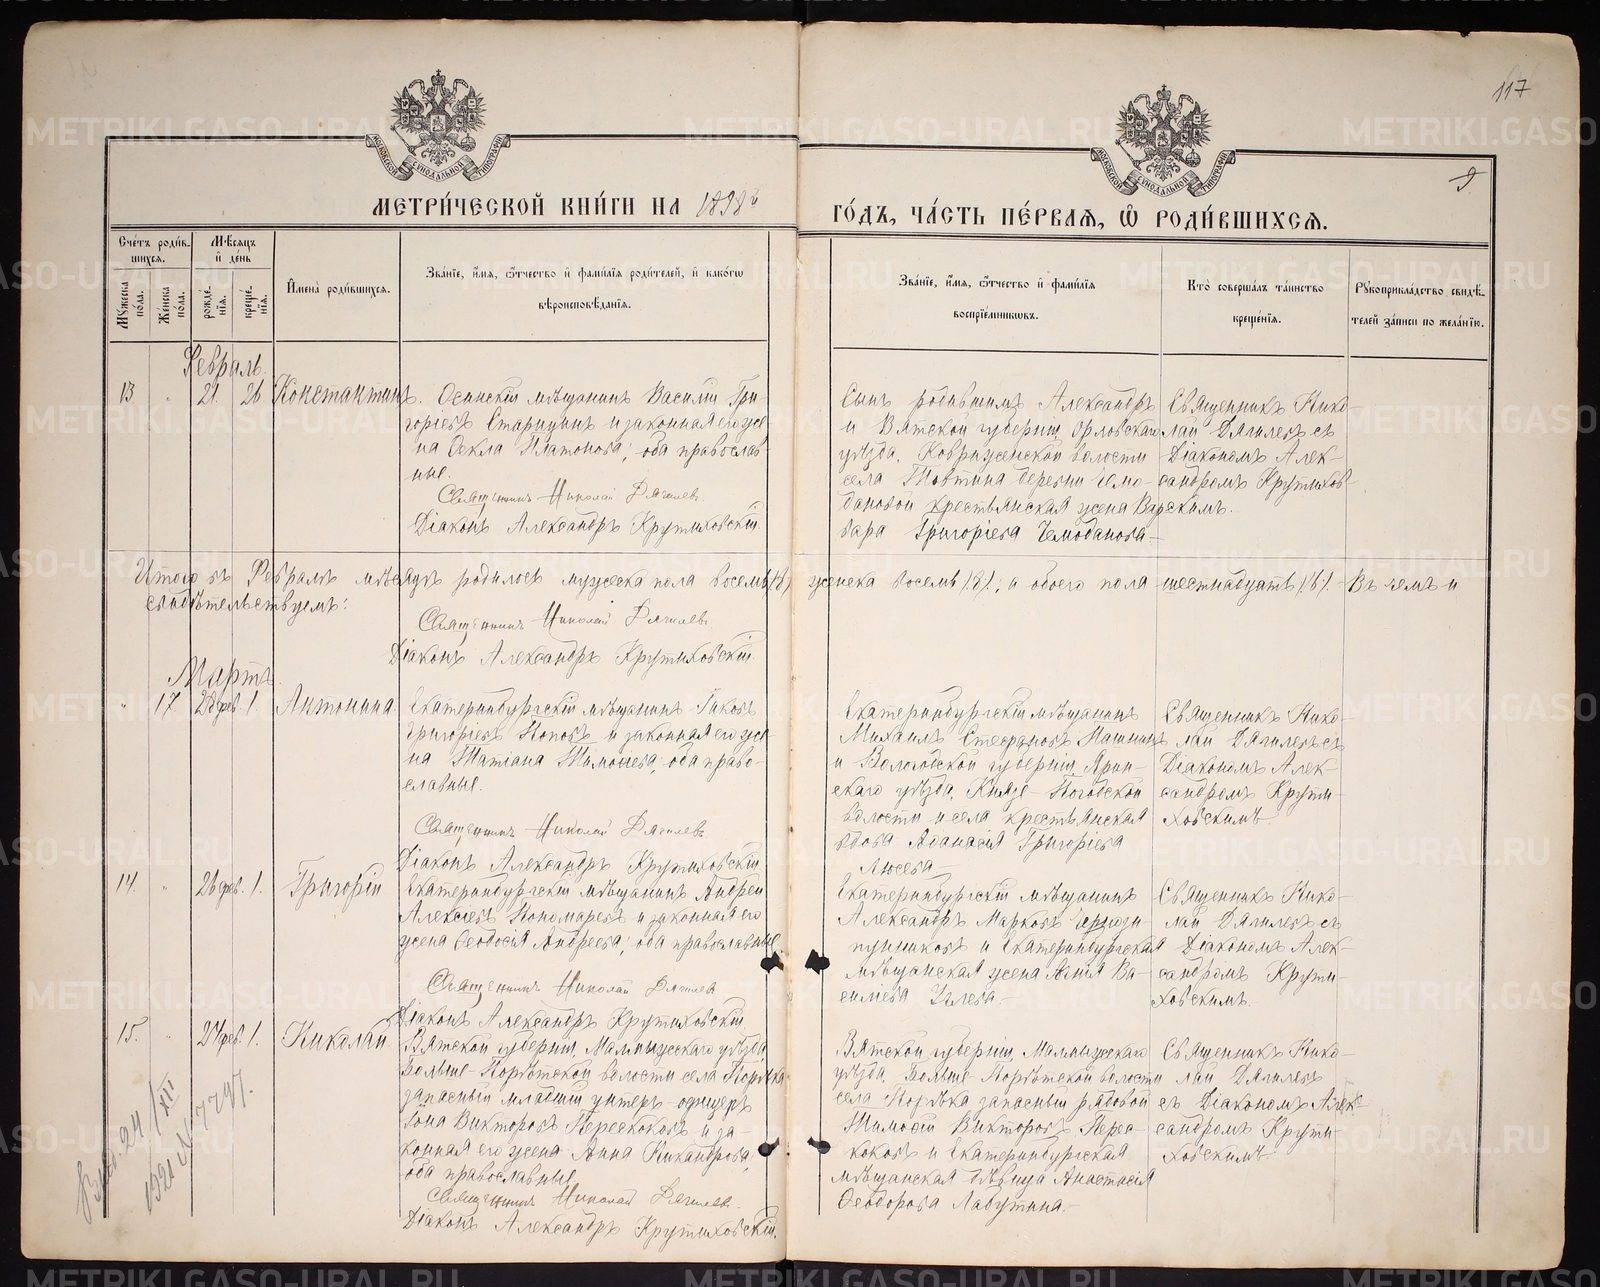 117
9
МЕТРИ́ЧЕСКОЙ КНИ́ГИ НА 1898й
ГО́ДЪ, ЧА́СТЬ ПЕ́РВАѦ, Ѽ РОДИ́ВШИХСѦ.
Сче́тъ роди́вшихсѧ.
Мѣ́сѧцъ и де́нь
Мꙋ́жеска по́ла.
Же́нска по́ла.
рожде́нїѧ.
креще́нїѧ.
И҆мена̀ роди́вшихсѧ.
Зва́нїе, и҆́мѧ, ѻ҆́тчество и҆ фами́лїѧ роди́телей, и҆ како́гѡ
вѣроисповѣ́данїѧ.
Зва́нїе, и҆́мѧ, ѻ҆́тчество и҆ фами́лїѧ
воспрїе́мникѡвъ.
Кто̀ соверша́лъ та́инство
креще́нїѧ.
Рꙋкоприкла́дство свидѣ́-
телей за́писи по жела́нїю.
Февраль.
13 " 21. 26 Константинъ.
Осинскій мѣщанинъ Василій Гри-
горіевъ Старицынъ и законная его же-
на Ѳекла Платонова; оба православ-
ные.
Священникъ Николай Дягилевъ.
Діаконъ Александръ Крутиховскій.
Сынъ родившимъ Александръ
и Вятской губерніи Орловскаго
уѣзда,
волости
села деревни Чемо-
дановой крестьянская жена Вар-
вара Григоріева Чемоданова.
Священникъ Нико-
лай Дягилевъ съ
Діакономъ Алек-
сандромъ Крутихов-
скимъ.
Итого въ Февралѣ мѣсяцѣ родилось мужеска пола восемь (8) женска восемь (8), а обоего пола шестнадцать (16). Въ чемъ и
свидѣтельствуемъ:
Священникъ Николай Дягилевъ
Діаконъ Александръ Крутиховскій.
Мартъ.
" 17 28 фев. 1. Антонина
Екатеринбургскій мѣщанинъ Іаковъ
Григорьевъ Поповъ и законная его же-
на Татіана Тимоѳеева, оба право-
славные.
Священникъ Николай Дягилевъ
Діаконъ Александръ Крутиховскій.
Екатеринбургскій мѣщанинъ
Михаилъ Стефановъ
и Вологодской губерніи Ярен-
скаго уѣзда, Княже-Погостской
волости и села крестьянская
вдова Аѳанасія Григоріева
Люсева
Священникъ Нико-
лай Дягилевъ съ
Діакономъ Алек-
сандромъ Крути-
ховскимъ.
14. " 26 фев. 1. Григорій
Екатеринбургскій мѣщанинъ Андрей
Алексіевъ Пономаревъ и законная его
жена Ѳеодосія Андреева, оба православные.
Священникъ Николай Дягилевъ
Діаконъ Александръ Крутиховскій.
Екатеринбургскій мѣщанинъ
Александръ Марковъ
и Екатеринбургская
мѣщанская жена Ва-
силіева
Священникъ Нико-
лай Дягилевъ съ
Діакономъ Алек-
сандромъ Крути-
ховскимъ.
15. " 27 фев. 1. Николай
Вятской губерніи, Малмыжскаго уѣзда
Больше-Порѣкской волости села Порѣка
запасный младшій унтеръ-офицеръ
Іона Викторовъ Перескоковъ и за-
конная его жена Анна Никандрова,
оба православные.
Священникъ Николай Дягилевъ.
Діаконъ Александръ Крутиховскій.
Вятской губерніи, Малмыжскаго
уѣзда, Больше-Порѣкской волости
села Порѣка запасный рядовой
Тимоѳей Викторовъ Перес-
коковъ и Екатеринбургская
мѣщанская дѣвица Анастасія
Ѳеодорова Лабутина.
Священникъ Нико-
лай Дягилевъ
съ Діакономъ Алек-
сандромъ Крути-
ховскимъ.
24/XI
1921 N 7797.
METRIKI.GASO-URAL.RU